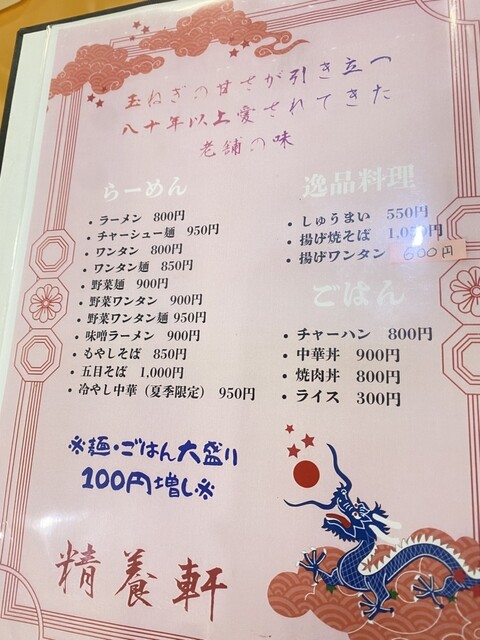 玉ねぎの甘さが引き立つ
八十年以上愛されてきた
老舗の味
らーめん
・ラーメン 800円
・チャーシュー麺 950円
・ワンタン 800円
・ワンタン麺 850円
・野菜麺 900円
・野菜ワンタン 900円
・野菜ワンタン麺 950円
・味噌ラーメン 900円
・もやしそば 850円
・五目そば 1,000円
・冷やし中華（夏季限定） 950円
※麺・ごはん大盛り
100円増し※
逸品料理
・しゅうまい 550円
・揚げ焼そば 1,050円
・揚げワンタン 600円
ごはん
・チャーハン 800円
・中華丼 900円
・焼肉丼 800円
・ライス 300円
精養軒